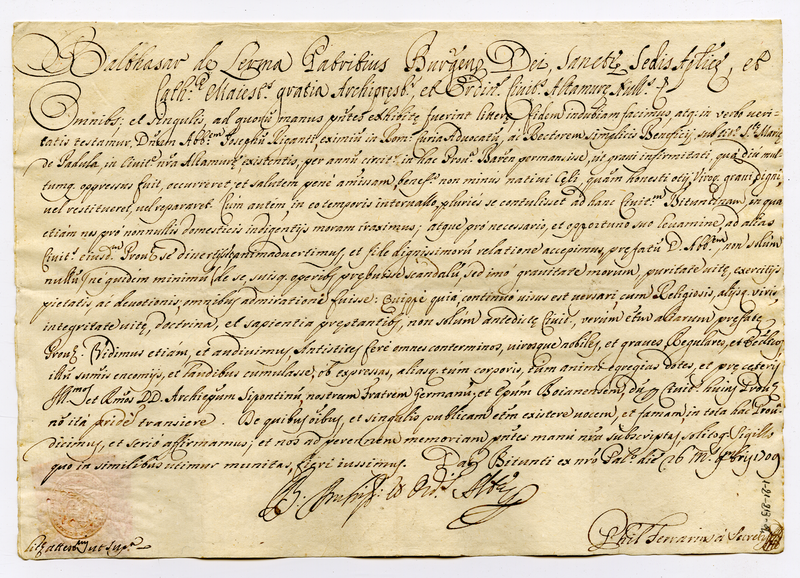 Balthasar de Lerma Patritius Burgen: Dei, Sanctę Sedis Aplicę, et
Cath.ę Maiest.s gratia Archipresb.r et Ordin. Civit.s Altamurę Null.s
Omnibs; et singulis, ad quorũ manus pñtes exhibitę fuerint litterę fidem indubiam facimus, atq; in verbo veri-
tatis testamur, Dñum Abb.em Iosephũ Riganti, eximiũ in Rom: Curia Advocatũ, ac Rectorem simplicis Beneficij sub tit. S.tę Marię
de Padula, in Civit.e nr̃a Altamurę existentis, per annũ circit.r in hac Prov.a Baren permansisse, ut gravi infirmitati, qua diu mul-
tumq. oppressus fuit, occurreret, et salutem penè amissam benef.o non minus nativi Cęli, quàm honesti otij,
vel restitueret, vel repararet. Cum autem in eo temporis intervallo pluries se contulisset ad hanc Civit.m Bituntinam, in qua
etiam nos prò nonnullis domesticis indigentijs moram traximus; atque prò necessario, et opportuno suo levamine, ad alias
Civit.s eiusd.m Prov.ę se divertisse animadvertimus, et fide dignissimorũ relatione accepimus, pręfatũ D. Abb.em, non solùm
nullũ, nè quidem minimũ de se, suisq. operibus prębuisse scandalũ, sed imò gravitate morum, puritate vitę, exercitijs
pietatis, ac devotionis, omnibus admirationi fuisse: Quippè quia, continuò visus est versari cum Religiosis, alijsq. viris,
integritate vitę, doctrina, et sapientia pręstantibs, non solùm antedictę Civit.s, verùm etiã aliarum pręfatę
Prov.ę. Vidimus etiam, et audivimus, Antistites ferè omnes conterminos, virosque nobiles, et graves Regulares, et
illũ summis encomijs, et laudibus cumulasse, ob expresas, aliasq. tum corporis, tum animi egregias dotes, et prę cęteris
Ill.mos et Rmõs DD. Archiepũm Sipontinũ, nostrum Fratrem Germanũ, et Epũm Boianensem, dum Civit. huius Prov.ę
non ità pridẽ transiere. De quibus oĩbus, et singulis publicam etiã existere vocem, et famam in tota hac Prov.a
dicimus, et seriò affirmamus; et nos ad perennem memoriam pñtes manu nr̃a subscriptas solitoq. Sigillo
quo in similibus utimur munitas, fieri iussimus. Dat. Bitunti ex nr̃o Pal.o die 26 M. 1709
Phil. Ferrarius à Secretis